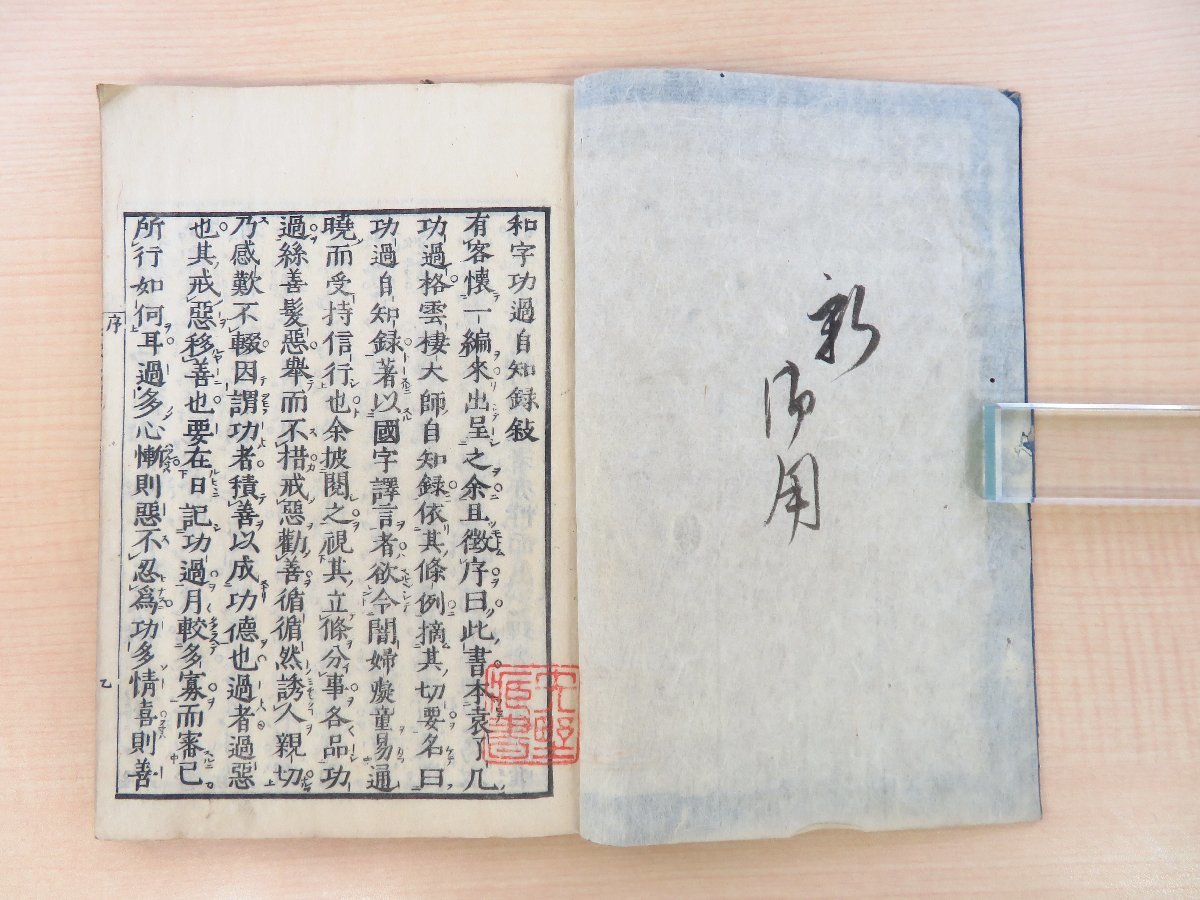 新
御用
和字功過自知録敍
有客懷一編來出呈之余且徴序曰此書本袁了凡
功過格雲棲大師自知録依其條例摘其切要名曰
功過自知録著以國字譯言者欲令闇婦癡童易通
曉而受持信行也余披閲之視其立條分事各品功
過絲善髮惡舉而不措戒惡勸善循循然誘人親切
乃感歎不輟因謂功者積善以成功德也過者過惡
也其戒惡移善也要在日記功過月較多寡而審己
所行如何耳過多心慚則惡不忍爲功多情喜則善
序
乙
藏書